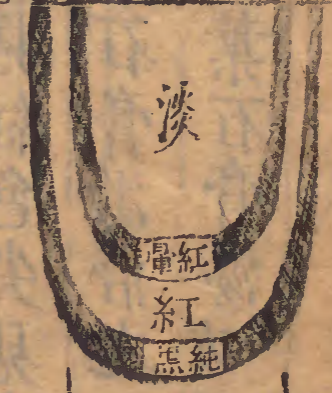 淡
紅暈
紅
純黑